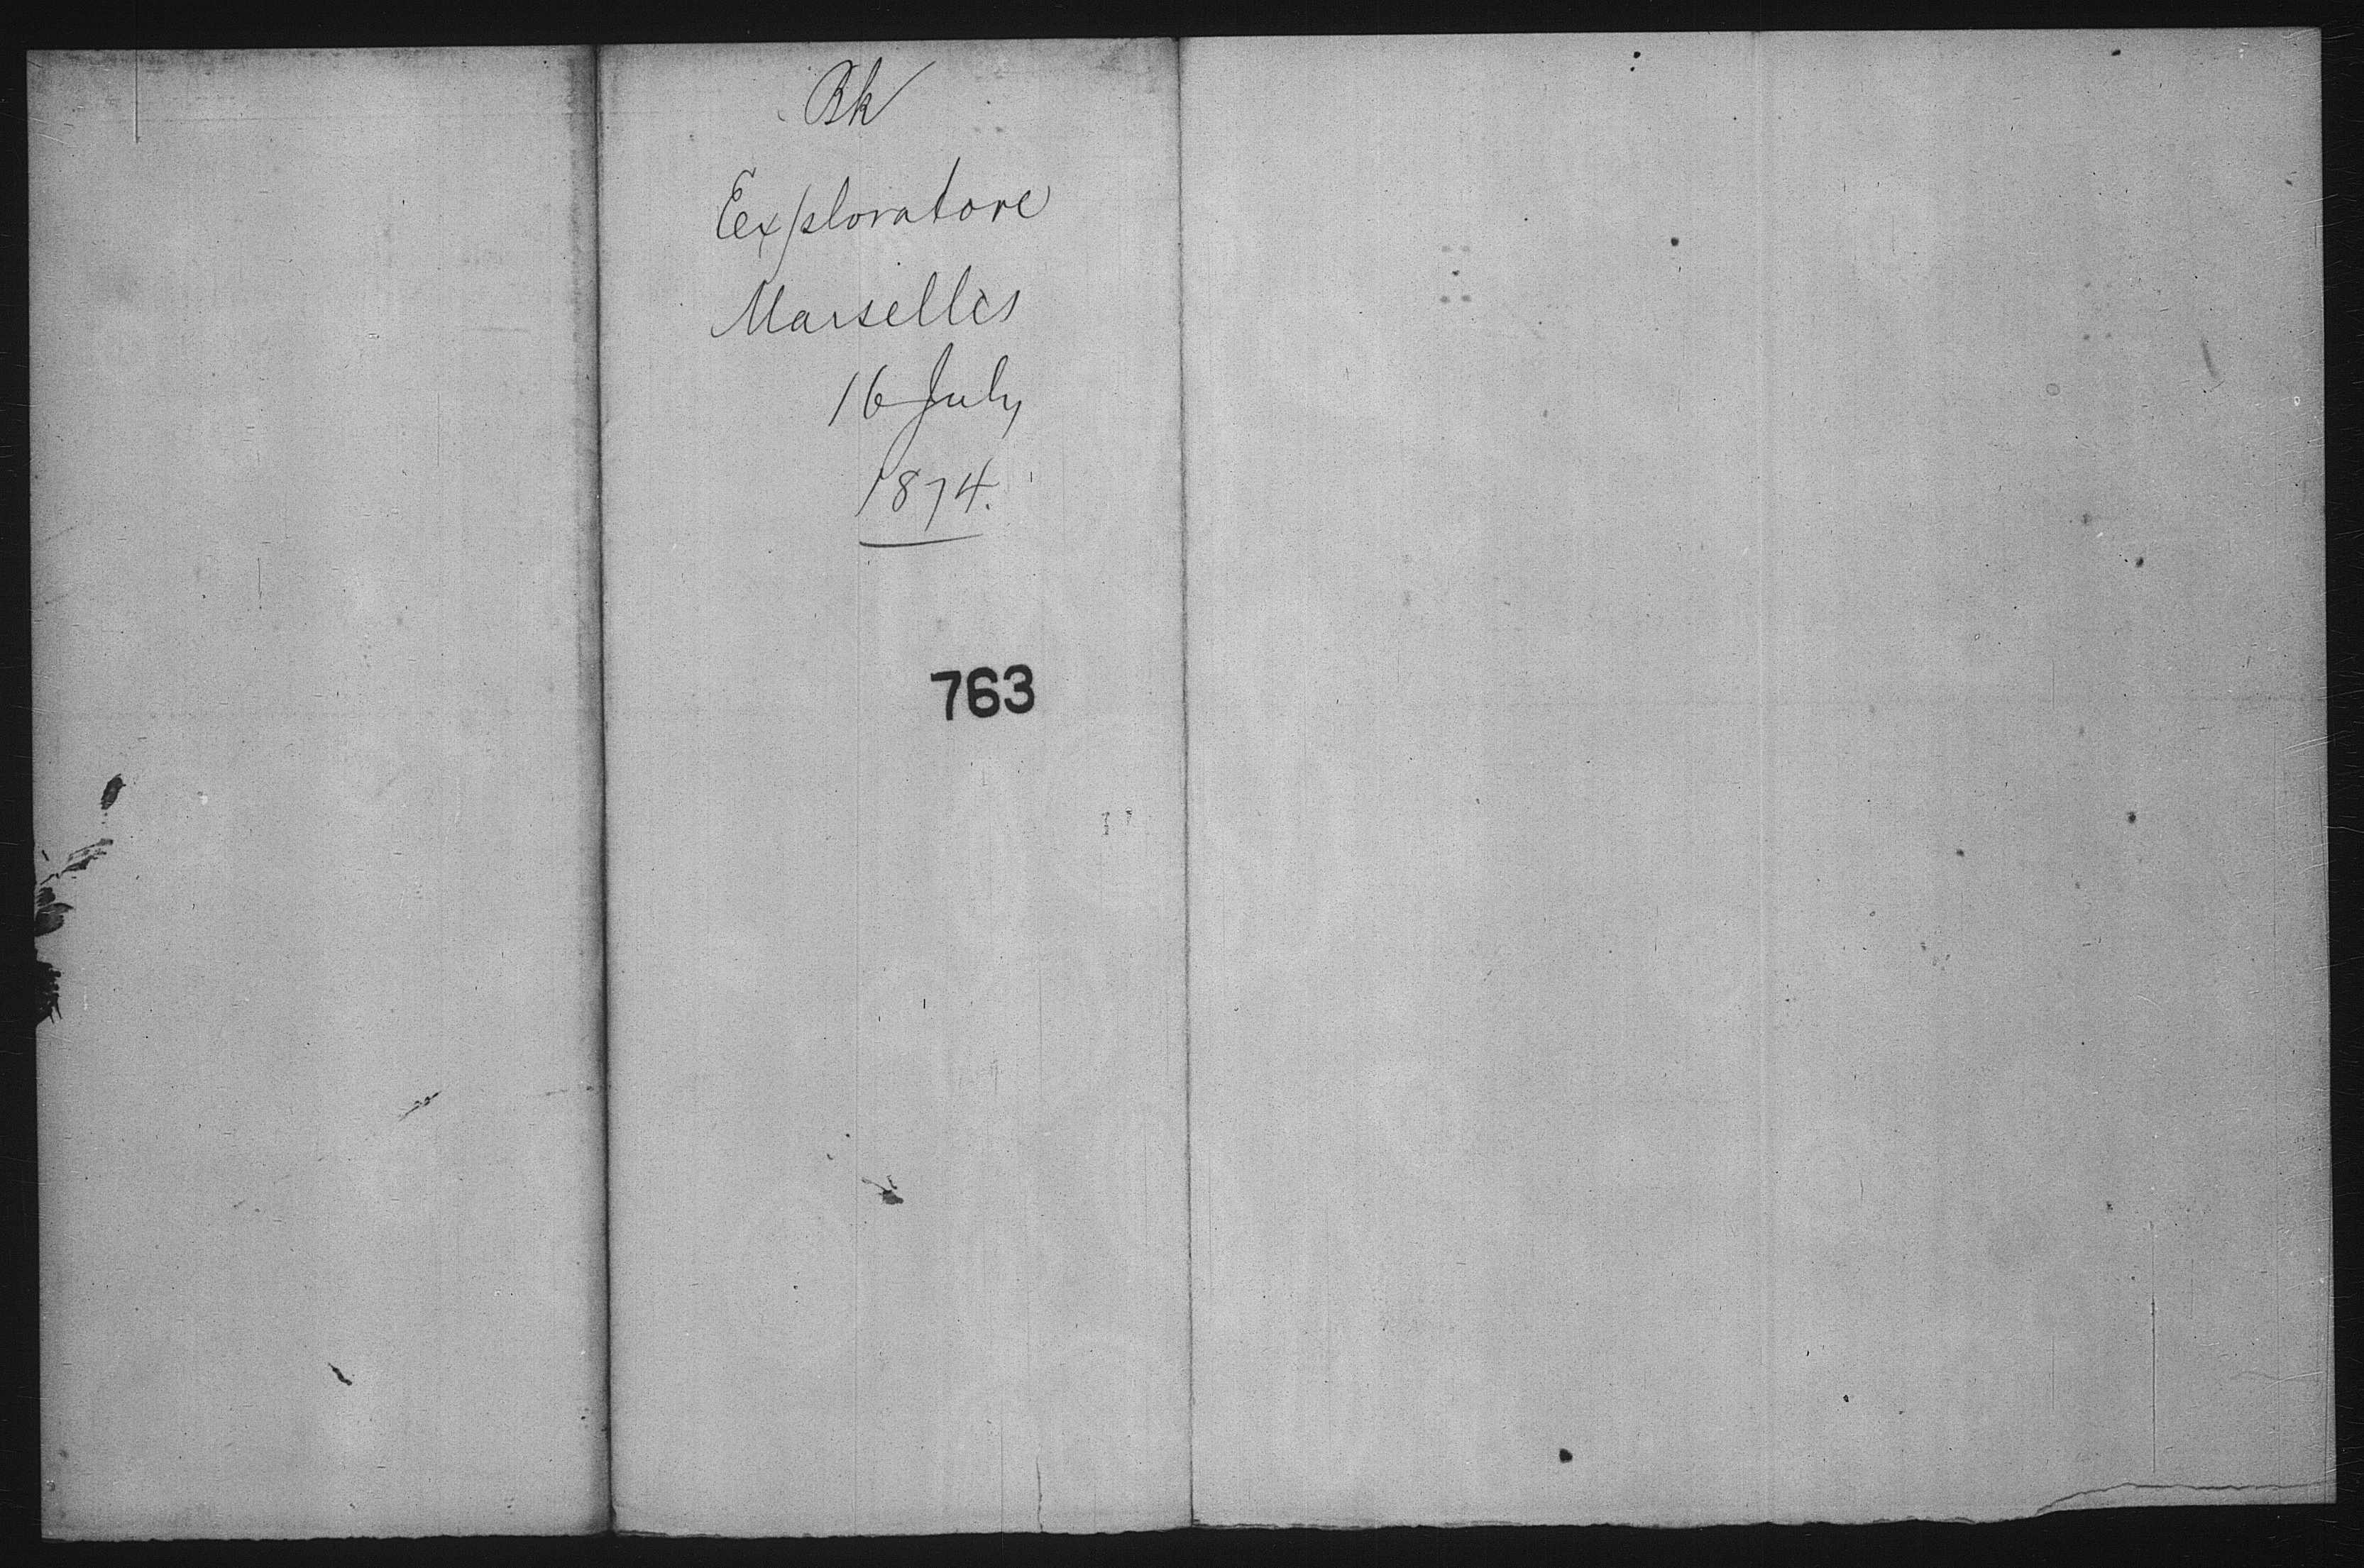 Bk
Exploratore
Marselles
16 July
1874.
763